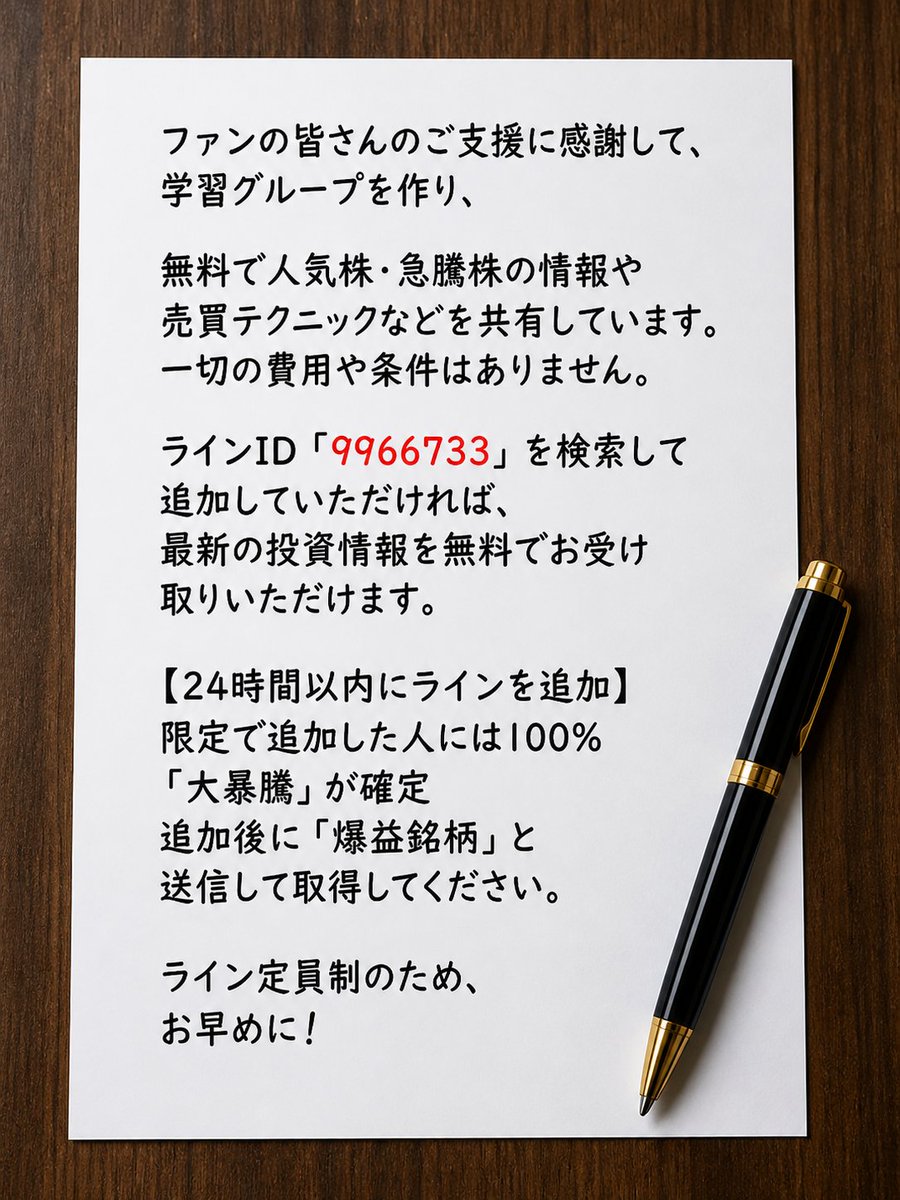 ファンの皆さんのご支援に感謝して、
学習グループを作り、
無料で人気株・急騰株の情報や
売買テクニックなどを共有しています。
一切の費用や条件はありません。
ラインID「9966733」を検索して
追加していただければ、
最新の投資情報を無料でお受け
取りいただけます。
【24時間以内にラインを追加】
限定で追加した人には100%
「大暴騰」が確定
追加後に「爆益銘柄」と
送信して取得してください。
ライン定員制のため、
お早めに!